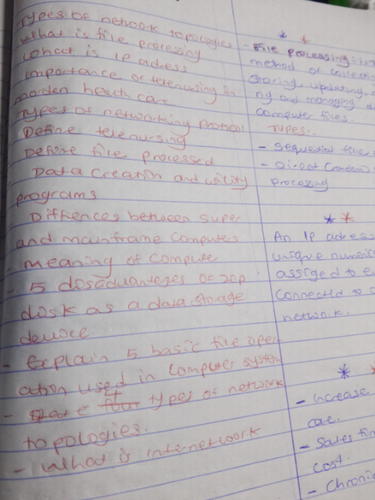 Types of network topologies
What is file procesing
What is IP adress
importance of telenursing in
morden heath care
Types of networking protocol
Define telenursing
Define file processed
Data Creation and utility
programs
Diffences between super
and mainframe computers
- meaning of compute
- 5 disadvantages of zip
disk as a data storage
device
- Explain 5 basic file oper
ation used in computer system
- State 4 types of network
topologies.
- What is internetwork
* *
- File processing:
method of collecti
storing, updating,
ng and managing
computer files.
Types.
- Sequential file
- Direct (random)
processing
* *
An IP adress
unique numeric
assigned to e
connected to a
network.
* *
- Increase
care.
- Saves tim
cost.
- Chronic